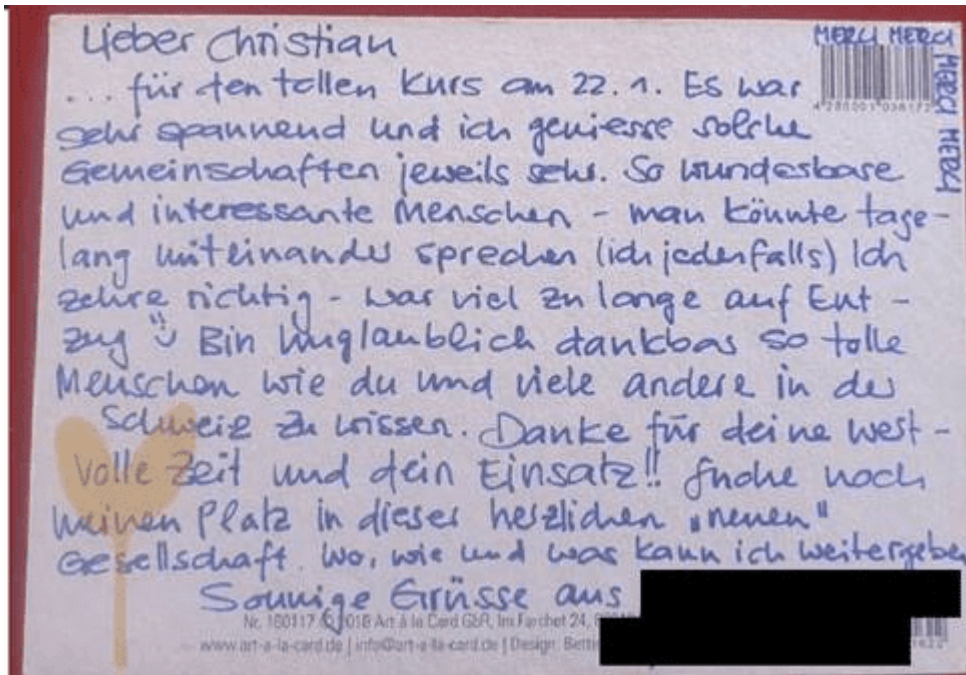 Lieber Christian
MERCI MERCI
MERCI MERCI
... für den tollen Kurs am 22.1. Es war
sehr spannend und ich geniesse solche
Gemeinschaften jeweils sehr. So wunderbare
und interessante Menschen - man könnte tage-
lang miteinander sprechen (ich jedenfalls) Ich
zehre richtig - war viel zu lange auf Ent-
zug Bin unglaublich dankbar so tolle
Menschen wie du und viele andere in der
Schweiz zu wissen. Danke für deine wert-
volle Zeit und dein Einsatz!! Suche noch
meinen Platz in dieser herzlichen "neuen"
Gesellschaft. Wo, wie und was kann ich weitergeben
Sonnige Grüsse aus
Nr. 160117 / © 2018 Art à la Card GbR, Im Farchet 24,
www.art-a-la-card.de | info@art-a-la-card.de | Design: